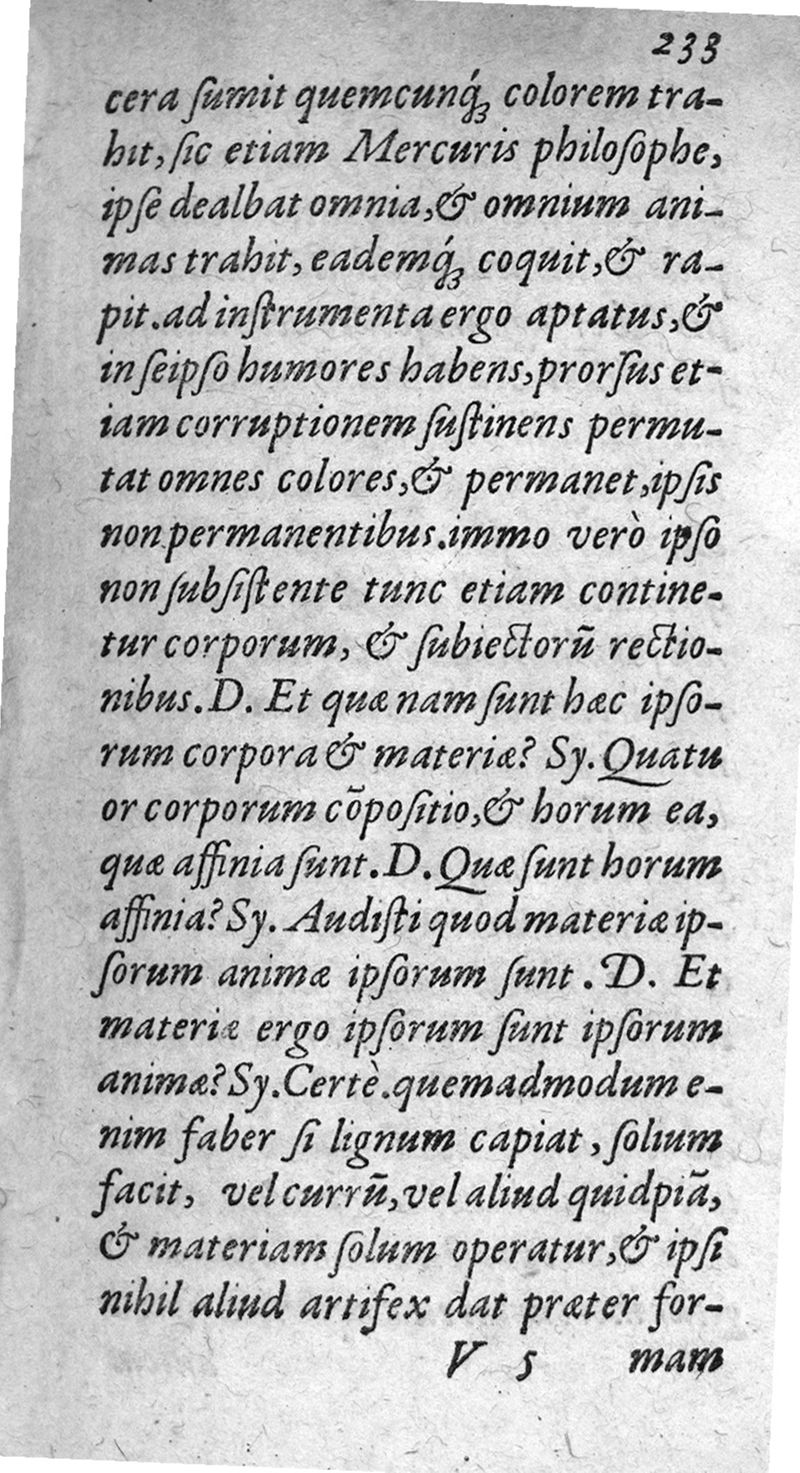 233
cera ſumit quemcunq́ꝫ colorem tra-
hit, ſic etiam Mercuris philoſophe,
ipſe dealbat omnia, & omnium ani-
mas trahit, eademq́ꝫ coquit, & ra-
pit. ad inſtrumenta ergo aptatus, &
in ſeipſo humores habens, prorſus et-
iam corruptionem ſuſtinens permu-
tat omnes colores, & permanet, ipſis
non permanentibus. immo verò ipſo
non ſubſiſtente tunc etiam contine-
tur corporum, & ſubiectorū rectio-
nibus. D. Et quæ nam ſunt hæc ipſo-
rum corpora & materiæ? Sy. Quatu
or corporum cōpoſitio, & horum ea,
quæ affinia ſunt. D. Quæ ſunt horum
affinia? Sy. Audiſti quod materiæ ip-
ſorum animæ ipſorum ſunt. D. Et
materiæ ergo ipſorum ſunt ipſorum
animæ? Sy. Certè. quemadmodum e-
nim faber ſi lignum capiat, ſolium
facit, vel currū, vel aliud quidpiā,
& materiam ſolum operatur, & ipſi
nihil aliud artifex dat præter for-
V 5 mam